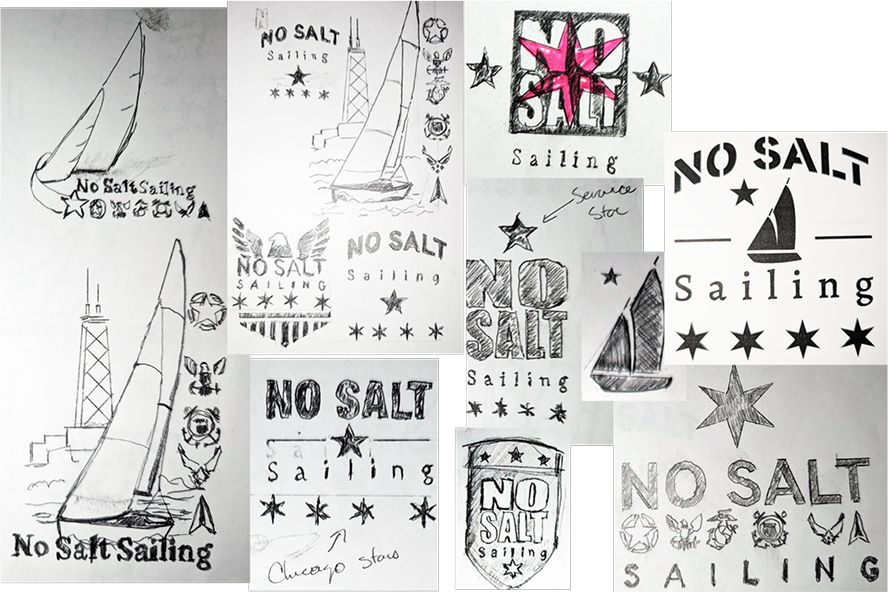 No Salt Sailing
No Salt Sailing
NO SALT
Sailing
NO SALT
SAILING
NO SALT
Sailing
NO SALT
Sailing
Chicago Stars
NO
SALT
Sailing
Service
Star
NO
SALT
Sailing
NO
SALT
Sailing
NO SALT
Sailing
NO SALT
SAILING